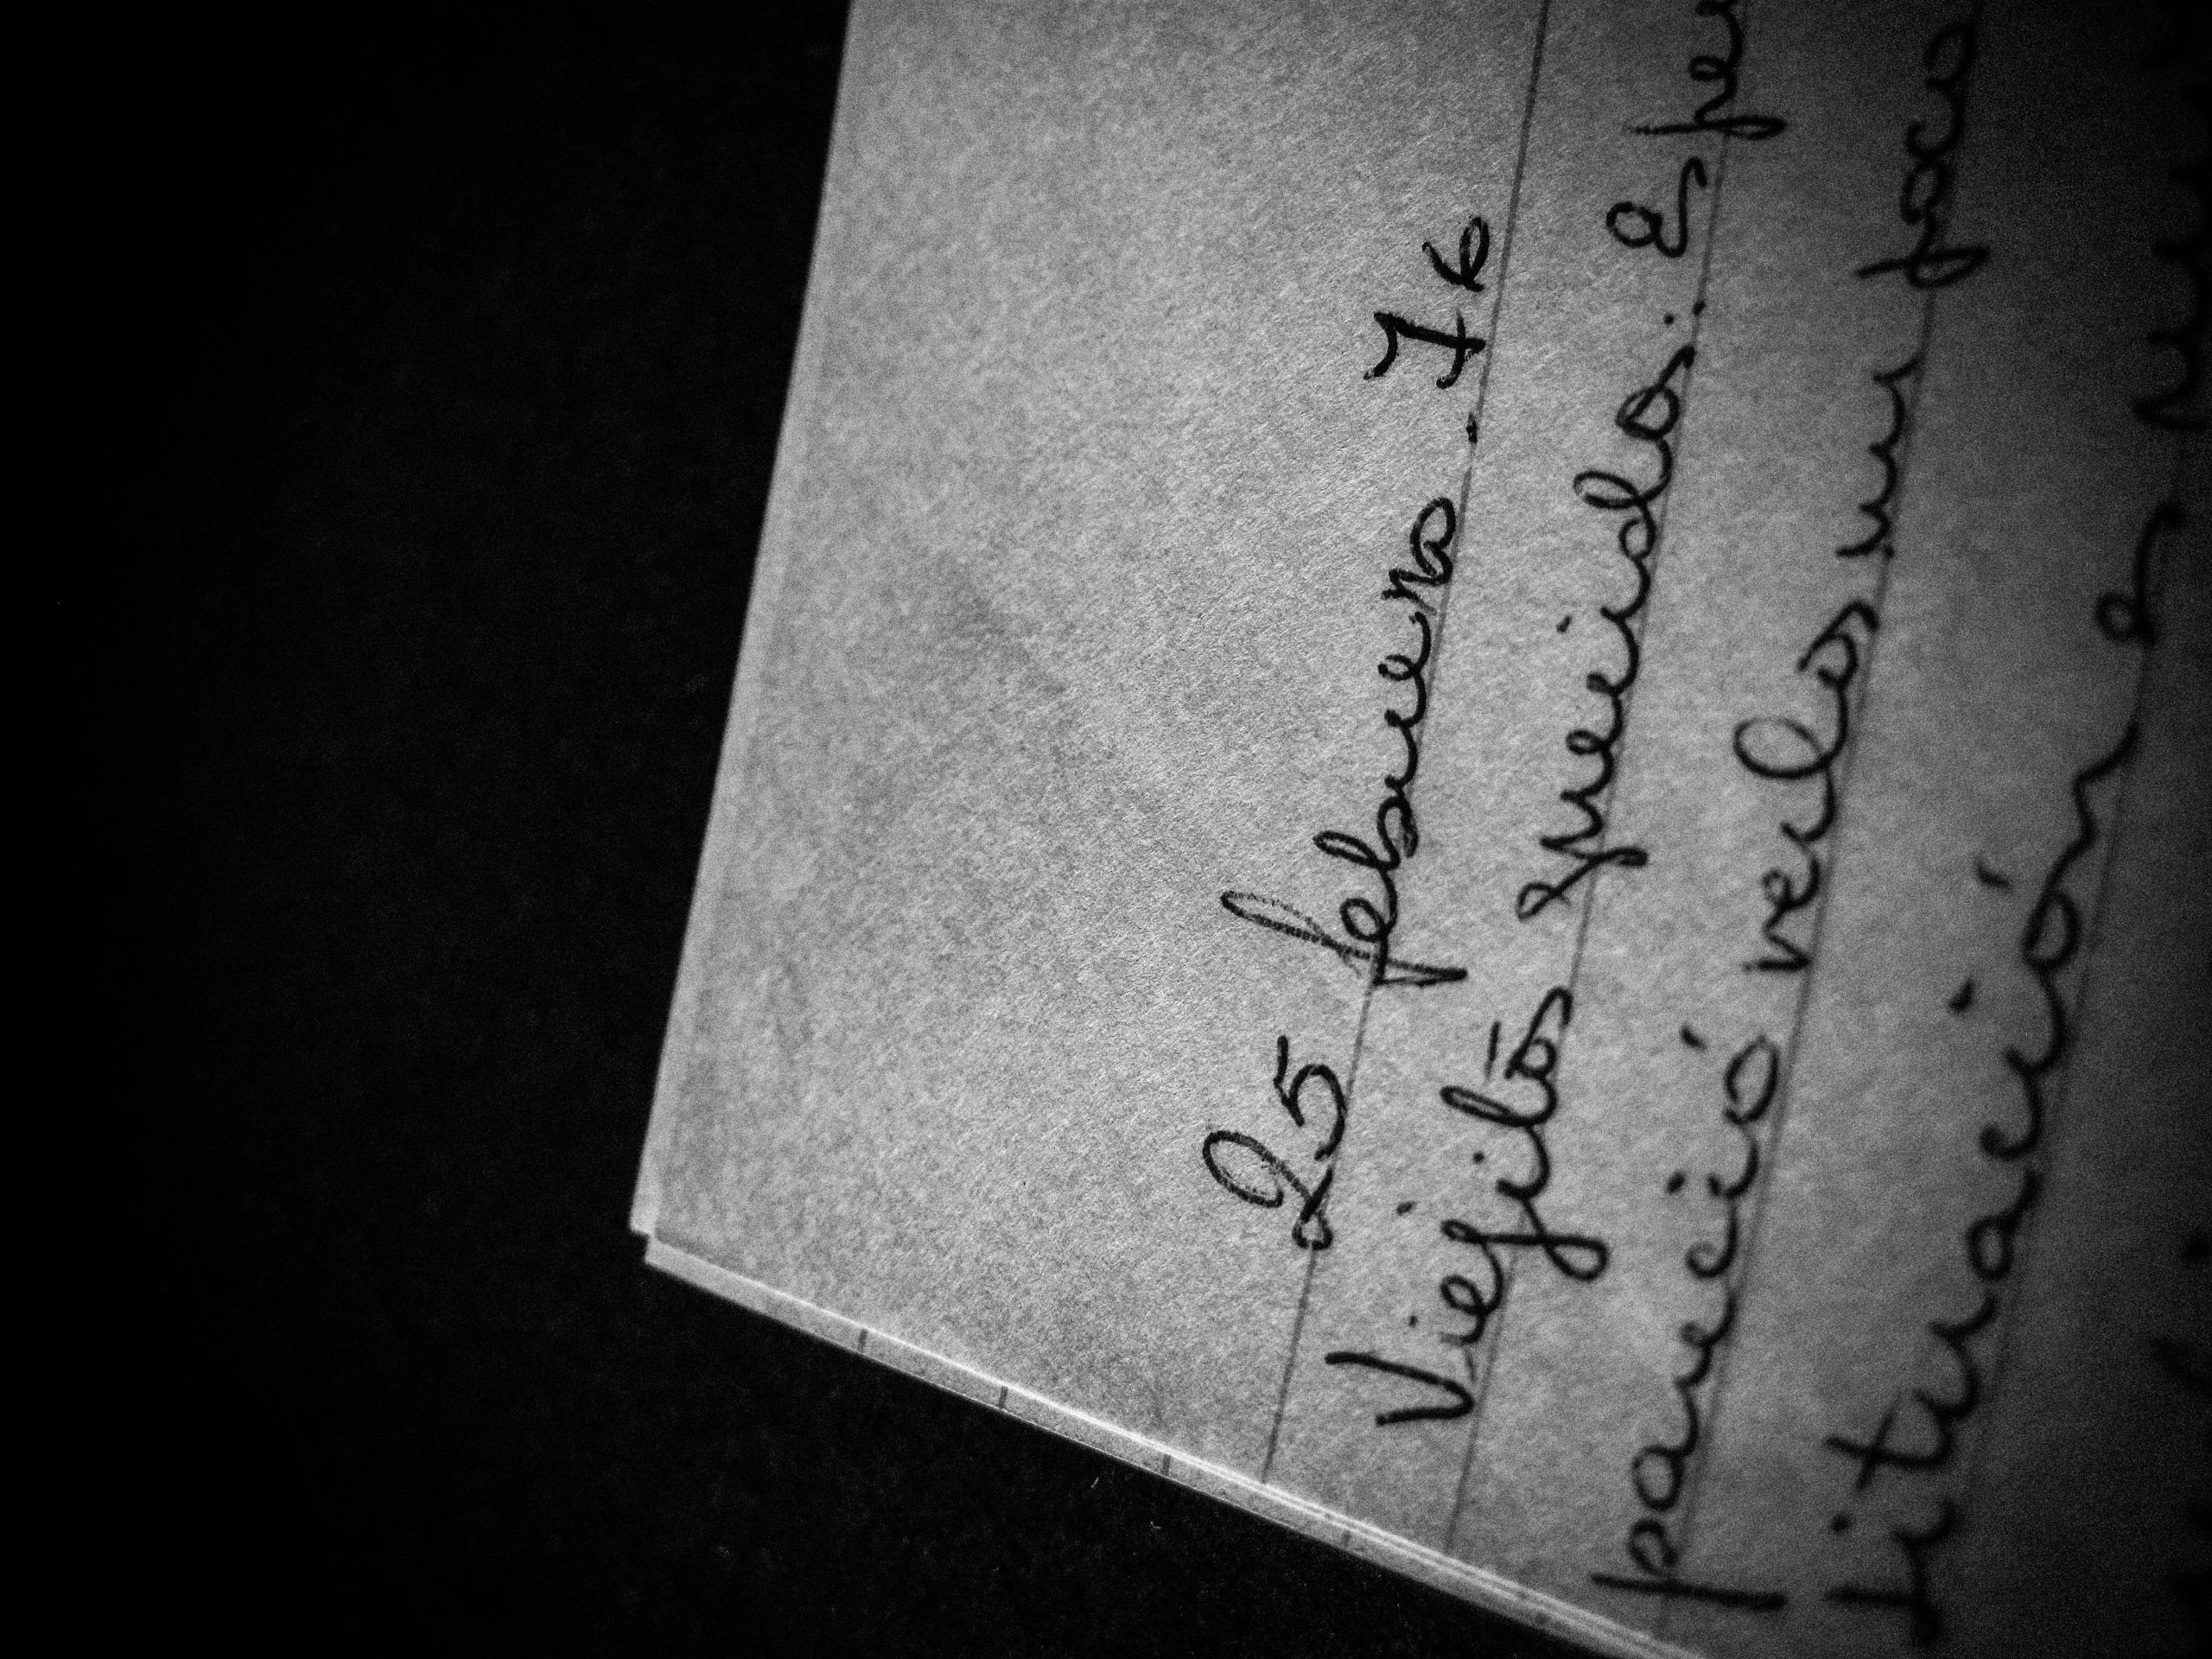 25 febrero - 76
Viejitos queridos: Espe
pareció verlos un poco
situación